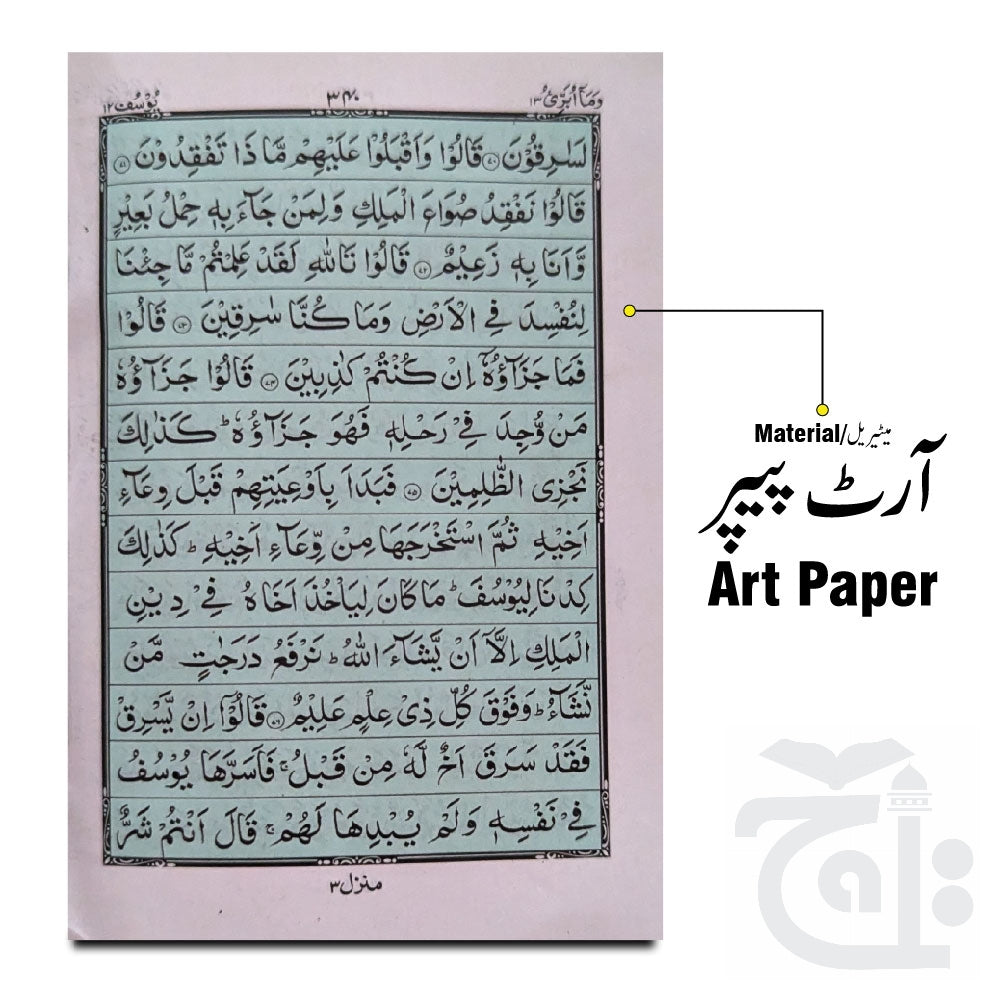 وَمَآ أُبَرِّئُ ۱۳
۳۴۰
يُوْسُف ۱۲
لَسٰرِقُوْنَ ۷۰ قَالُوْا وَاَقْبَلُوْا عَلَيْهِمْ مَّا ذَا تَفْقِدُوْنَ ۷۱
قَالُوْا نَفْقِدُ صُوَاعَ الْمَلِكِ وَلِمَنْ جَآءَ بِهٖ حِمْلُ بَعِيْرٍ
وَّاَنَا بِهٖ زَعِيْمٌ ۷۲ قَالُوْا تَاللّٰهِ لَقَدْ عَلِمْتُمْ مَّا جِئْنَا
لِنُفْسِدَ فِى الْاَرْضِ وَمَا كُنَّا سٰرِقِيْنَ ۷۳ قَالُوْا
فَمَا جَزَآؤُهٗٓ اِنْ كُنْتُمْ كٰذِبِيْنَ ۷۴ قَالُوْا جَزَآؤُهٗ
مَنْ وُّجِدَ فِىْ رَحْلِهٖ فَهُوَ جَزَآؤُهٗ ؕ كَذٰلِكَ
نَجْزِى الظّٰلِمِيْنَ ۷۵ فَبَدَاَ بِاَوْعِيَتِهِمْ قَبْلَ وِعَآءِ
اَخِيْهِ ثُمَّ اسْتَخْرَجَهَا مِنْ وِّعَآءِ اَخِيْهِ ؕ كَذٰلِكَ
كِدْنَا لِيُوْسُفَ ؕ مَا كَانَ لِيَاْخُذَ اَخَاهُ فِىْ دِيْنِ
الْمَلِكِ اِلَّآ اَنْ يَّشَآءَ اللّٰهُ ؕ نَرْفَعُ دَرَجٰتٍ مَّنْ
نَّشَآءُ ؕ وَفَوْقَ كُلِّ ذِىْ عِلْمٍ عَلِيْمٌ ۷۶ قَالُوْٓا اِنْ يَّسْرِقْ
فَقَدْ سَرَقَ اَخٌ لَّهٗ مِنْ قَبْلُ ۚ فَاَسَرَّهَا يُوْسُفُ
فِىْ نَفْسِهٖ وَلَمْ يُبْدِهَا لَهُمْ ۚ قَالَ اَنْتُمْ شَرٌّ
منزل ۳
Material/میٹیریل
آرٹ پیپر
Art Paper